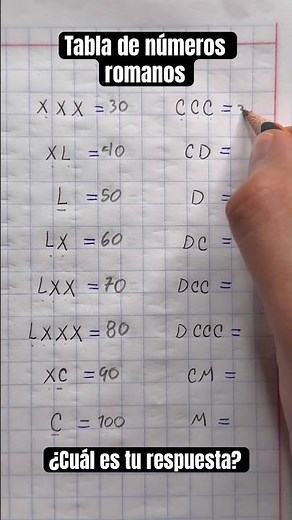 Tabla de números
romanos
XXX = 30
XL = 40
L = 50
LX = 60
LXX = 70
LXXX = 80
XC = 90
C = 100
CCC = 3
CD =
D =
DC =
DCC =
DCCC =
CM =
M =
¿Cuál es tu respuesta?